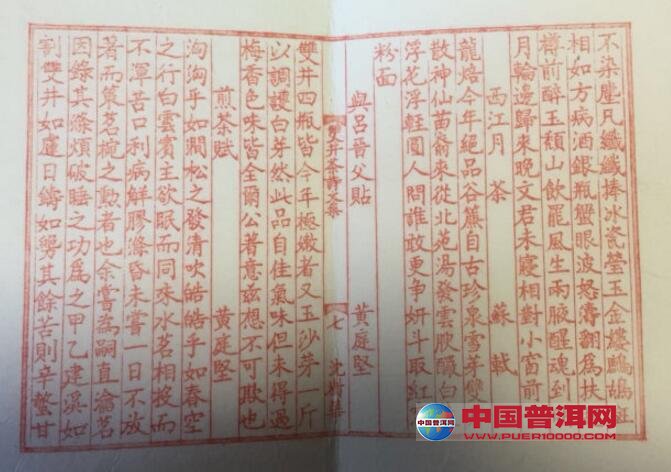 不染塵凡纖纖捧冰瓷瑩玉金縷鷓鴣斑
相如方病酒銀瓶蟹眼波怒濤翻為扶
樽前醉玉頹山飲罷風生兩腋醒魂到
月輪邊歸來晚文君未寢相對小窗前
西江月 茶 蘇軾
龍焙今年絕品谷簾自古珍泉雪芽雙
散神仙苗裔來從北苑湯發雲腴釅白
浮花浮輕圓人間誰敢更爭妍斗取紅
粉面
與呂晉父貼 黃庭堅
雙井茶詩文集 七
雙井四瓶皆今年極嫩者又玉沙芽一斤
以調護白芽然此品自佳氣味但未得過
梅香色味皆全爾公著意茲想不可欺也
煎茶賦 黃庭堅
洶洶乎如澗松之發清吹皓皓乎如春空
之行白雲賓主欲眠而同味水茗相投而
不渾苦口利病解膠滌昏未嘗一日不放
著而策茗椀之勳者也余嘗為嗣直瀹茗
因錄其滌煩破睡之功為之甲乙建溪如
割雙井如霆日鑄如勞其餘苦則辛螫甘
中国普洱网
WWW.PUER10000.COM